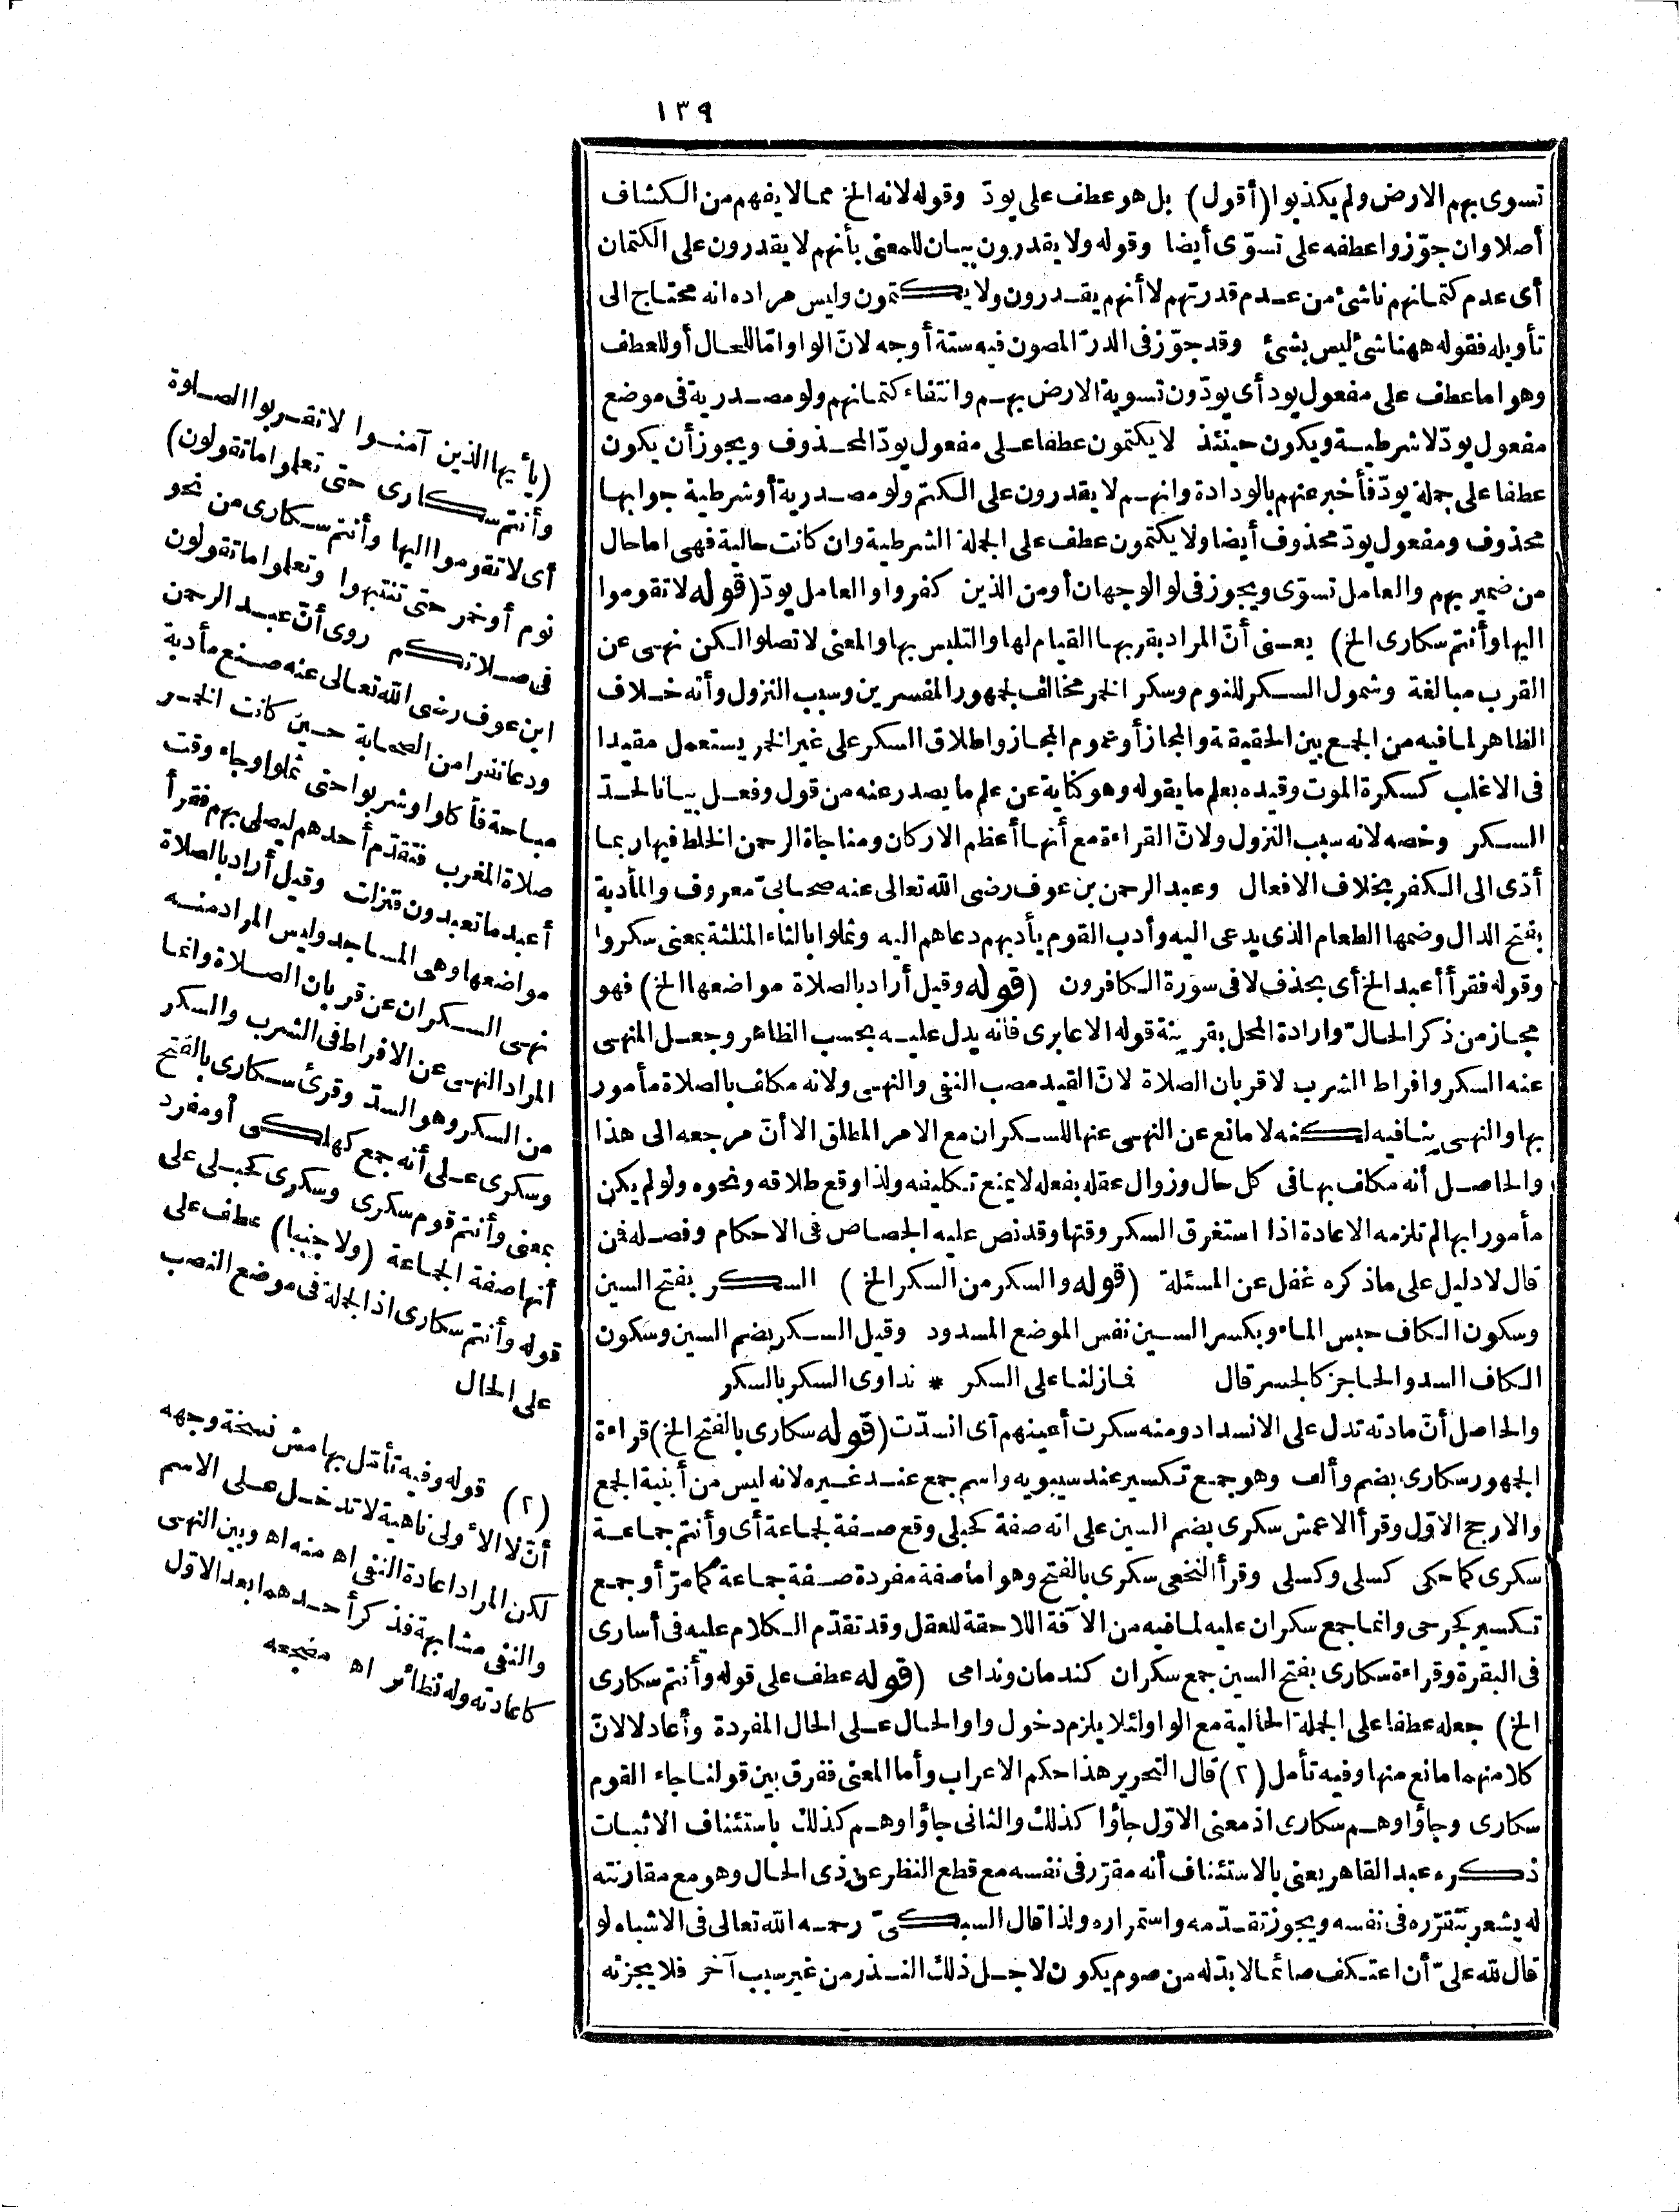 ١٣٩
تسوى بهم الارض ولم يكذبوا (أقول) بل هو عطف على يودّ وقوله لانه الخ مما لا يفهم من الكشاف
أصلا وان جوّزوا عطفه على تسوّى أيضا وقوله ولا يقدرون بيان للمعنى بأنهم لا يقدرون على الكتمان
أى عدم كتمانهم ناشئ من عدم قدرتهم لا أنهم يقدرون ولا يكتمون وليس مراده انه محتاج الى
تأويله فقوله ههنا شئ ليس بشئ وقد جوّز فى الدرّ المصون فيه ستة أوجه لانّ الواو امّا للحال أو للعطف
وهو اما عطف على مفعول يود أى يودّون تسوية الارض بهم وانتفاء كتمانهم ولو مصدرية فى موضع
مفعول يودّ لا شرطية ويكون حينئذ لا يكتمون عطفا على مفعول يودّ المحذوف ويجوز أن يكون
عطفا على جملة يودّ فأخبر عنهم بالودادة وانهم لا يقدرون على الكتم ولو مصدرية أو شرطية جوابها
محذوف ومفعول يودّ محذوف أيضا ولا يكتمون عطف على الجملة الشرطية وان كانت حالية فهى اما حال
من ضمير بهم والعامل تسوّى ويجوز فى لو الوجهان أو من الذين كفروا والعامل يودّ (قوله لا تقوموا
اليها وأنتم سكارى الخ) يعنى أنّ المراد بقربها القيام لها والتلبس بها والمعنى لا تصلوا لكن نهى عن
القرب مبالغة وشمول السكر للنوم وسكر الخمر مخالف لجمهور المفسرين وسبب النزول وأنه خلاف
الظاهر لما فيه من الجمع بين الحقيقة والمجاز أو عموم المجاز واطلاق السكر على غير الخمر يستعمل مقيدا
فى الاغلب كسكرة الموت وقيده بعلم ما يقوله وهو كناية عن علم ما يصدر عنه من قول وفعل بيانا لحدّ
السكر وخصه لانه سبب النزول ولانّ القراءة مع أنها أعظم الاركان ومناجاة الرحمن الخلط فيها ربما
أدّى الى الكفر بخلاف الافعال وعبد الرحمن بن عوف رضى الله تعالى عنه صحابىّ معروف والمأدبة
بفتح الدال وضمها الطعام الذى يدعى اليه وأدب القوم يأدبهم دعاهم اليه وثملوا بالثاء المثلثة بمعنى سكروا
وقوله فقرأ أعبد الخ أى بحذف لا فى سورة الكافرون (قوله وقيل أراد بالصلاة مواضعها الخ) فهو
مجاز من ذكر الحالّ وارادة المحل بقرينة قوله الا عابرى فانه يدل عليه بحسب الظاهر وجعل المنهى
عنه السكر وافراط الشرب لا قربان الصلاة لانّ القيد مصب النفى والنهى ولانه مكلف بالصلاة مأمور
بها والنهى ينافيه لكنه لا مانع عن النهى عنها للسكران مع الامر المطلق الا أنّ مرجعه الى هذا
والحاصل أنه مكلف بها فى كل حال وزوال عقله بفعله لا يمنع تكليفه ولذا وقع طلاقه ونحوه ولو لم يكن
مأمورا بها لم تلزمه الاعادة اذا استغرق السكر وقتها وقد نص عليه الجصاص فى الاحكام وفصله فمن
قال لا دليل على ما ذكره غفل عن المسئلة (قوله والسكر من السكر الخ) السكر بفتح السين
وسكون الكاف حبس الماء وبكسر السين نفس الموضع المسدود وقيل السكر بضم السين وسكون
الكاف السد والحاجز كالجسر قال فما زلنا على السكر * نداوى السكر بالسكر
والحاصل أنّ مادته تدل على الانسداد ومنه سكرت أعينهم أى انسدّت (قوله سكارى بالفتح الخ) قراءة
الجمهور سكارى بضم وألف وهو جمع تكسير عند سيبويه واسم جمع عند غيره لانه ليس من أبنية الجمع
والارجح الاوّل وقرأ الاعمش سكرى بضم السين على انه صفة كحبلى وقع صفة لجماعة أى وأنتم جماعة
سكرى كما حكى كسلى وكسلى وقرأ النخعى سكرى بالفتح وهو اما صفة مفردة صفة جماعة كما مرّ أو جمع
تكسير كجرحى وانما جمع سكران عليه لما فيه من الآفة اللاحقة للعقل وقد تقدّم الكلام عليه فى أسارى
فى البقرة وقراءة سكارى بفتح السين جمع سكران كندمان وندامى (قوله عطف على قوله وأنتم سكارى
الخ) جعله عطفا على الجملة الحالية مع الواو لئلا يلزم دخول واو الحال على الحال المفردة وأعاد لا لانّ
كلا منهما مانع منها وفيه تأمل (٢) قال النحرير هذا حكم الاعراب وأما المعنى ففرق بين قولنا جاء القوم
سكارى وجاؤا وهم سكارى اذ معنى الاوّل جاؤا كذلك والثانى جاؤا وهم كذلك باستئناف الاثبات
ذكره عبد القاهر يعنى بالاستئناف أنه مقرّر فى نفسه مع قطع النظر عن ذى الحال وهو مع مقارنته
له يشعر بتقرّره فى نفسه ويجوز تقدّمه واستمراره ولذا قال السبكىّ رحمه الله تعالى فى الاشباه لو
قال لله علىّ أن اعتكف صائما لا بدّ له من صوم يكون لاجل ذلك النذر من غير سبب آخر فلا يجزئه
(يأيها الذين آمنوا لا تقربوا الصلوة
وأنتم سكارى حتى تعلموا ما تقولون)
أى لا تقوموا اليها وأنتم سكارى من نحو
نوم أو خمر حتى تنتبهوا وتعلموا ما تقولون
فى صلاتكم روى أنّ عبد الرحمن
ابن عوف رضى الله تعالى عنه صنع مأدبة
ودعا نفرا من الصحابة حين كانت الخمر
مباحة فأكلوا وشربوا حتى ثملوا وجاء وقت
صلاة المغرب فتقدّم أحدهم ليصلى بهم فقرأ
أعبد ما تعبدون فنزلت وقيل أراد بالصلاة
مواضعها وهى المساجد وليس المراد منه
نهى السكران عن قربان الصلاة وانما
المراد النهى عن الافراط فى الشرب والسكر
من السكر وهو السدّ وقرئ سكارى بالفتح
وسكرى على أنه جمع كهلكى أو مفرد
بمعنى وأنتم قوم سكرى وسكرى كحبلى على
أنها صفة الجماعة (ولا جنبا) عطف على
قوله وأنتم سكارى اذ الجملة فى موضع النصب
على الحال
(٢) قوله وفيه تأمّل بهامش نسخة وجهه
أنّ لا الأولى ناهية لا تدخل على الاسم
لكن المراد اعادة النفى اه منه اه وبين النهى
والنفى مشابهة فذكر أحدهما بعد الاوّل
كاعادته وله نظائر اه مصححه